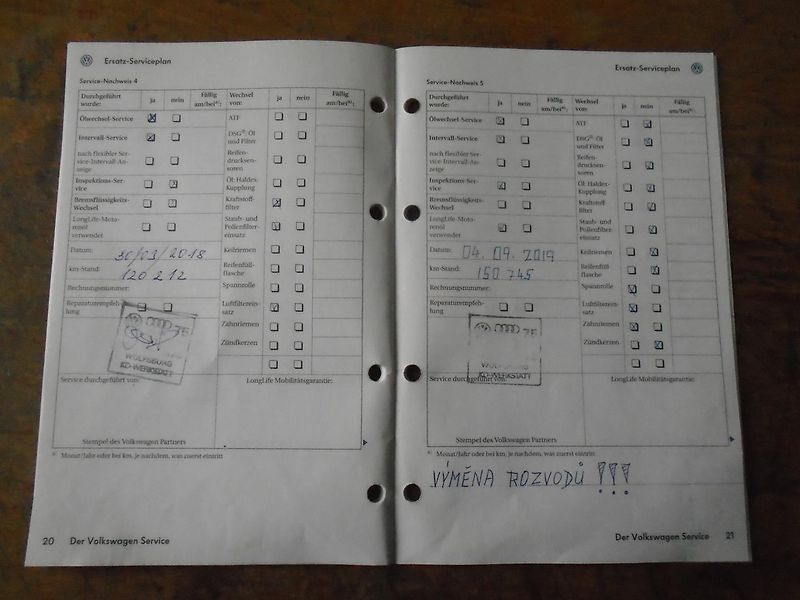 Ersatz-Serviceplan
Service-Nachweis 4
Durchgeführt wurde: ja nein Fällig am/bei*): Wechsel von: ja nein Fällig am/bei*):
Ölwechsel-Service ATF
Intervall-Service DSG®-Öl und Filter
nach flexibler Service-Intervall-Anzeige Reifendrucksensoren
Inspektions-Service Öl: Haldex-Kupplung
Bremsflüssigkeits-Wechsel Kraftstofffilter
LongLife-Motorenöl verwendet Staub- und Pollenfiltereinsatz
Datum: 30/03/2018 Keilriemen
km-Stand: 120 212 Reifenfüllflasche
Rechnungsnummer: Spannrolle
Reparaturempfehlung Luftfiltereinsatz
Zahnriemen
Zündkerzen
WOLFSBURG
KD-WERKSTATT
Service durchgeführt von: LongLife Mobilitätsgarantie:
Stempel des Volkswagen Partners
*) Monat/Jahr oder bei km, je nachdem, was zuerst eintritt
20 Der Volkswagen Service
Ersatz-Serviceplan
Service-Nachweis 5
Durchgeführt wurde: ja nein Fällig am/bei*): Wechsel von: ja nein Fällig am/bei*):
Ölwechsel-Service ATF
Intervall-Service DSG®-Öl und Filter
nach flexibler Service-Intervall-Anzeige Reifendrucksensoren
Inspektions-Service Öl: Haldex-Kupplung
Bremsflüssigkeits-Wechsel Kraftstofffilter
LongLife-Motorenöl verwendet Staub- und Pollenfiltereinsatz
Datum: 04. 09. 2019 Keilriemen
km-Stand: 150 745 Reifenfüllflasche
Rechnungsnummer: Spannrolle
Reparaturempfehlung Luftfiltereinsatz
Zahnriemen
Zündkerzen
WOLFSBURG
KD-WERKSTATT
Service durchgeführt von: LongLife Mobilitätsgarantie:
Stempel des Volkswagen Partners
*) Monat/Jahr oder bei km, je nachdem, was zuerst eintritt
VÝMĚNA ROZVODŮ !!!
Der Volkswagen Service 21